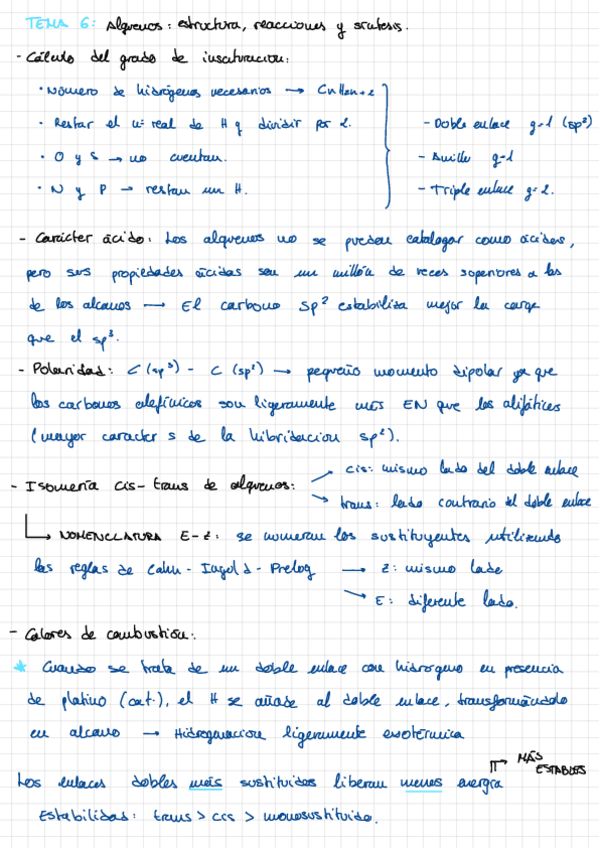 TEMA 6: Alquenos: estructura, reacciones y síntesis.
- Cálculo del grado de insaturación:
· Número de hidrógenos necesarios → CnH2n+2
· Restar el nº real de H y dividir por 2.
· O y S → no cuentan.
· N y P → restan un H.
- Doble enlace g=1 (sp²)
- Anillo g=1
- Triple enlace g=2.
- Carácter ácido: Los alquenos no se pueden catalogar como ácidos,
pero sus propiedades ácidas son un millón de veces superiores a las
de los alcanos → El carbono sp² estabiliza mejor la carga
que el sp³.
- Polaridad: C (sp³) - C (sp²) → pequeño momento dipolar ya que
los carbonos olefínicos son ligeramente más EN que los alifáticos
(mayor caracter s de la hibridacion sp²).
- Isomería cis-trans de alquenos:
cis: mismo lado del doble enlace
trans: lado contrario del doble enlace
→ NOMENCLATURA E-Z: se numeran los sustituyentes utilizando
las reglas de Cahn-Ingold-Prelog → Z: mismo lado
→ E: diferente lado.
- Calores de combustión:
* Cuando se trata de un doble enlace con hidrógeno en presencia
de platino (cat.), el H se añade al doble enlace, transformándolo
en alcano → Hidrogenacion ligeramente exotérmica
→ MÁS ESTABLES
Los enlaces dobles más sustituidos liberan menos energía
Estabilidad: trans > cis > monosustituido.